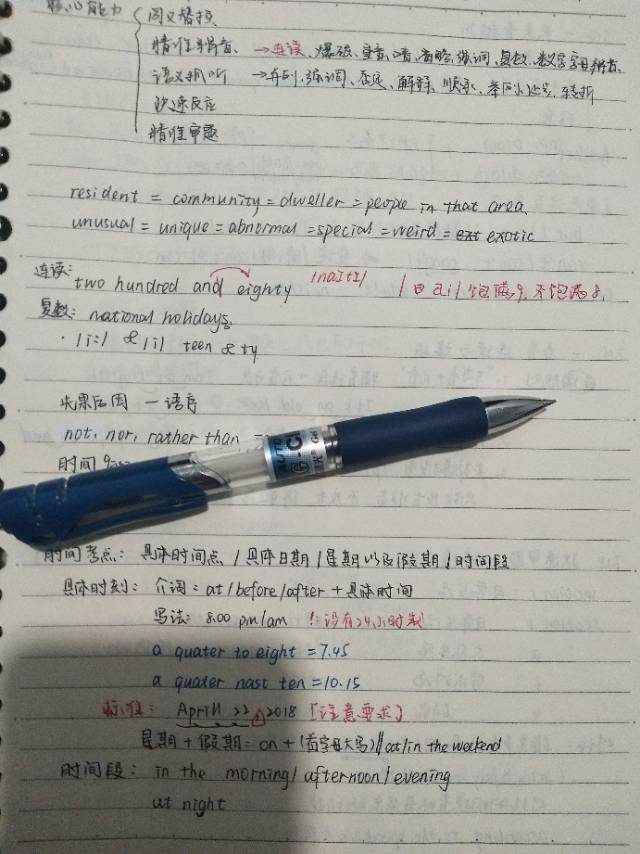 核心能力
同义替换
精准辨音 → 连读、爆破、变音、清、省略、弱词、复数、数字字母辨音、
语义抓听 → 并列、强调、否定、解释、顺承、举例、比较、转折
快速反应
精准审题
resident = community = dweller = people in that area.
unusual = unique = abnormal = special = weird = exotic
连读: two hundred and eighty /naItI/
复数: national holidays.
· /i:/ & /i/ teen & ty
先果后因 — 语序
not, nor, rather than
时间
时间考点: 具体时间点 / 具体日期 / 星期以及假期 / 时间段
具体时刻: 介词: at / before / after + 具体时间
写法: 8.00 pm/am !没有24小时制
a quater to eight = 7.45
a quater past ten = 10.15
标准: April 22, 2018 「注意要求」
星期 + 假期: on + (首字母大写) // at/in the weekend
时间段: in the morning / afternoon / evening
at night